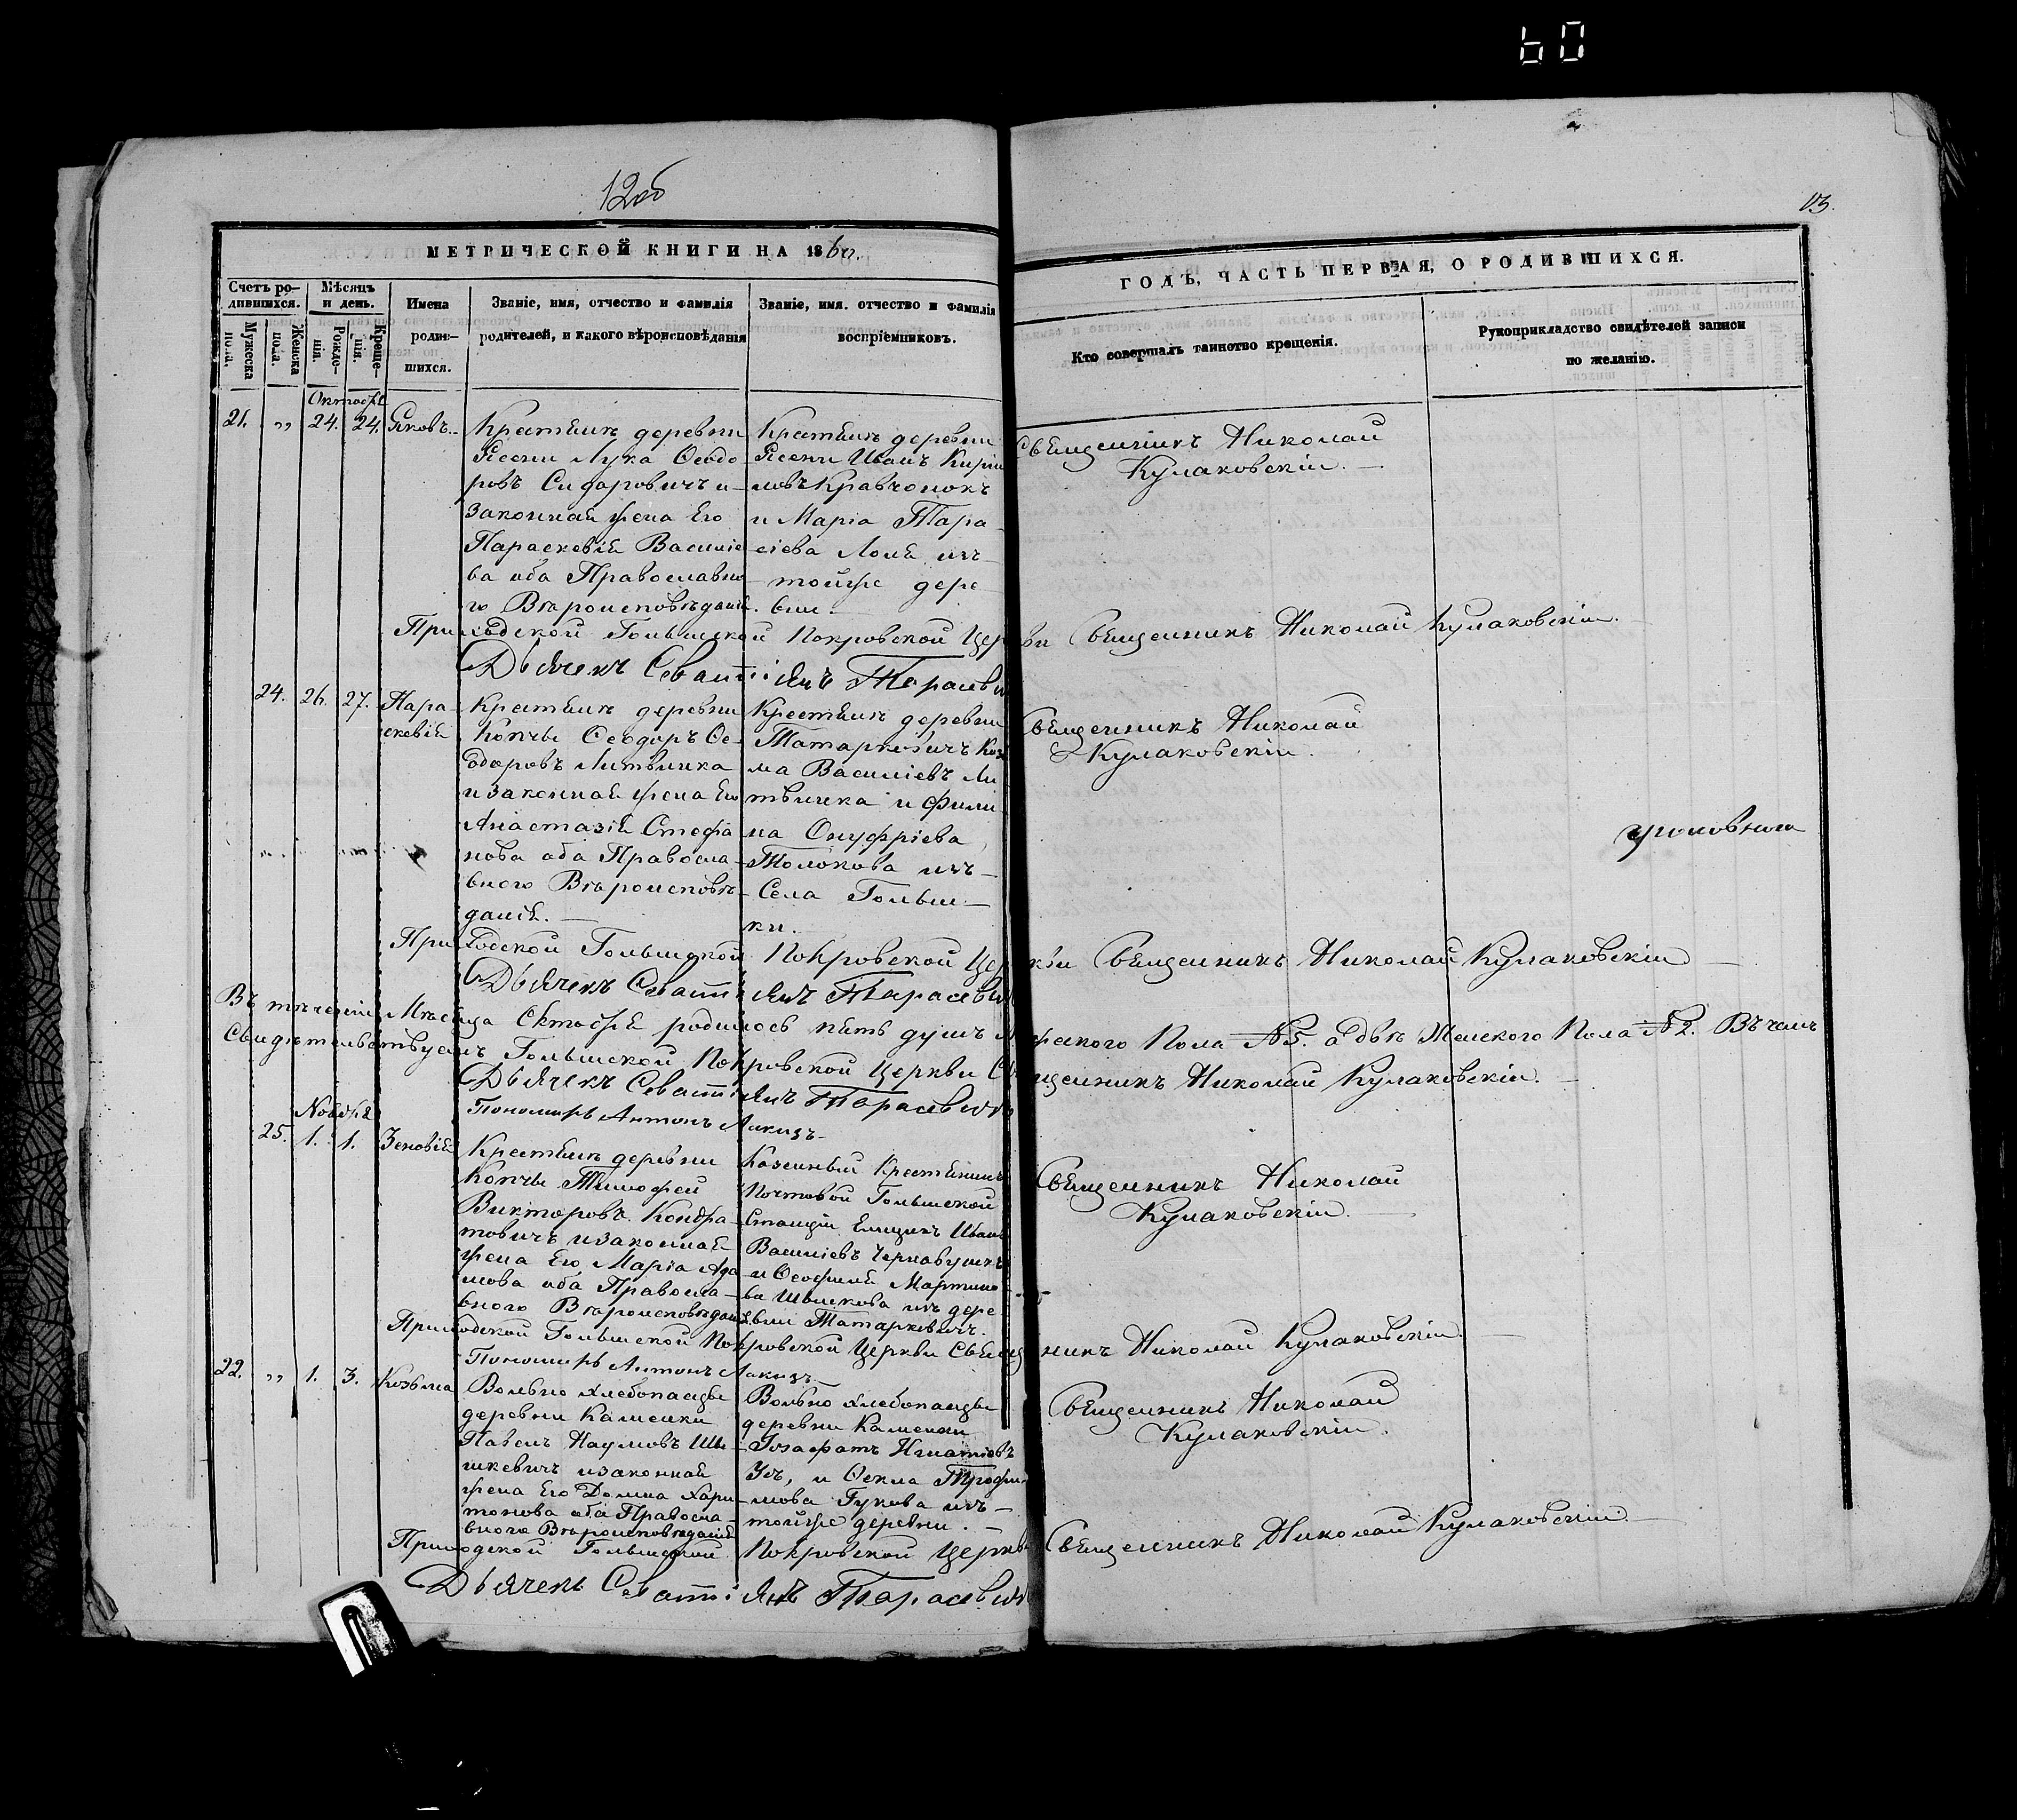 60
12об
13.
МЕТРИЧЕСКОЙ КНИГИ НА 1860.
ГОДЪ, ЧАСТЬ ПЕРВАЯ, О РОДИВШИХСЯ.
Счетъ ро-
дившихся.
Мужеска
пола.
Женска
пола.
Мѣсяцъ
и день.
Рожде-
нія.
Креще-
нія.
Имена
родив-
шихся.
Званіе, имя, отчество и фамилія
родителей, и какого вѣроисповѣданія
Званіе, имя. отчество и фамилія
воспріемниковъ.
Кто совершалъ таинство крещенія.
Рукоприкладство свидѣтелей записи
по желанію.
Октября
21. „ 24. 24. Яковъ.
Крестьянъ деревни
Ясени Лука Ѳеодо-
ровъ Сидаровичъ и
законная жена Его
Параскевія Василіе
ва оба Православно
го Вѣроисповѣданія.
Крестьянъ деревни
Ясени Иванъ Кири
ловъ Кравчонокъ
и Марія Тара
сіева Ломя изъ
тойже дере
вни.
Священникъ Николай
Кулаковскій.
Приходской Голышской Покровской Церкви Священникъ Николай Кулаковскій.
Дьячекъ Севастіянъ Тарасевич
24. 26. 27. Пара
скевія
Крестьянъ деревни
Копчы Ѳеодоръ Ѳе
одоровъ Литвинка
и законная жена Его
Анастазія Стефа
нова оба Правосла
вного Вѣроисповѣ
данія.
Крестьянъ деревни
Татарковичъ Коз
ма Василіевъ Ли
твинка и Фили
на Онуфріева
Толокова изъ
Села Голыш
ки.
Священникъ Николай
Кулаковскій.
Приходской Голышской Покровской Церкви Священникъ Николай Кулаковскій
Дьячекъ Севастіянъ Тарасевич
Въ теченіи Мѣсяца Октября родилось пять душъ Мужеского Пола №5. а двѣ Женского Пола №2. Въ чемъ
Свидѣтельствуемъ Голышской Покровской Церкви Священникъ Николай Кулаковскій.
Дьячекъ Севастіянъ Тарасевичъ
Пономарь Антонъ Лакизъ
Ноября
25. 1. 1. Зеновія
Крестьянъ деревни
Копчы Тимофей
Викторовъ Кондра
товичъ и законная
жена Его Марія Ада
мова оба Правосла
вного Вѣроисповѣданія.
Казенный Крестьянинъ
Почтовой Голышской
Станціи Емщикъ Иванъ
Василіевъ Чернавушкъ
и Ѳеофилія Мартино
ва Швыкова изъ дере
вни Татаркевичъ.
Священникъ Николай
Кулаковскій.
Приходской Голышской Покровской Церкви Священникъ Николай Кулаковскій.
Пономарь Антонъ Лакизъ
22. „ 1. 3. Козьма
Вольно хлебопашцы
деревни Каменки
Павелъ Наумовъ Шы
шкевичъ и законная
жена Его Домна Хари
тонова оба Правосла
вного Вѣроисповѣданія
Вольно хлебопашцы
деревни Каменки
Іозафатъ Игнатіевъ
Усъ, и Ѳекла Трофи
мова Гукова изъ
тойже деревни.
Священникъ Николай
Кулаковскій.
Приходской Голышской Покровской Церкви Священникъ Николай Кулаковскій
Дьячекъ Севастіянъ Тарасевич